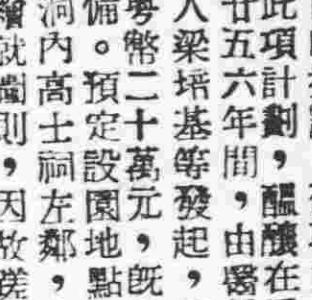 此項計劃，醞釀在
廿五六年間，由醫
人梁培基等發起，
粵幣二十萬元，既
備。預定設園地點
洞內高士祠左鄰，
繪就圖則，因故蹉